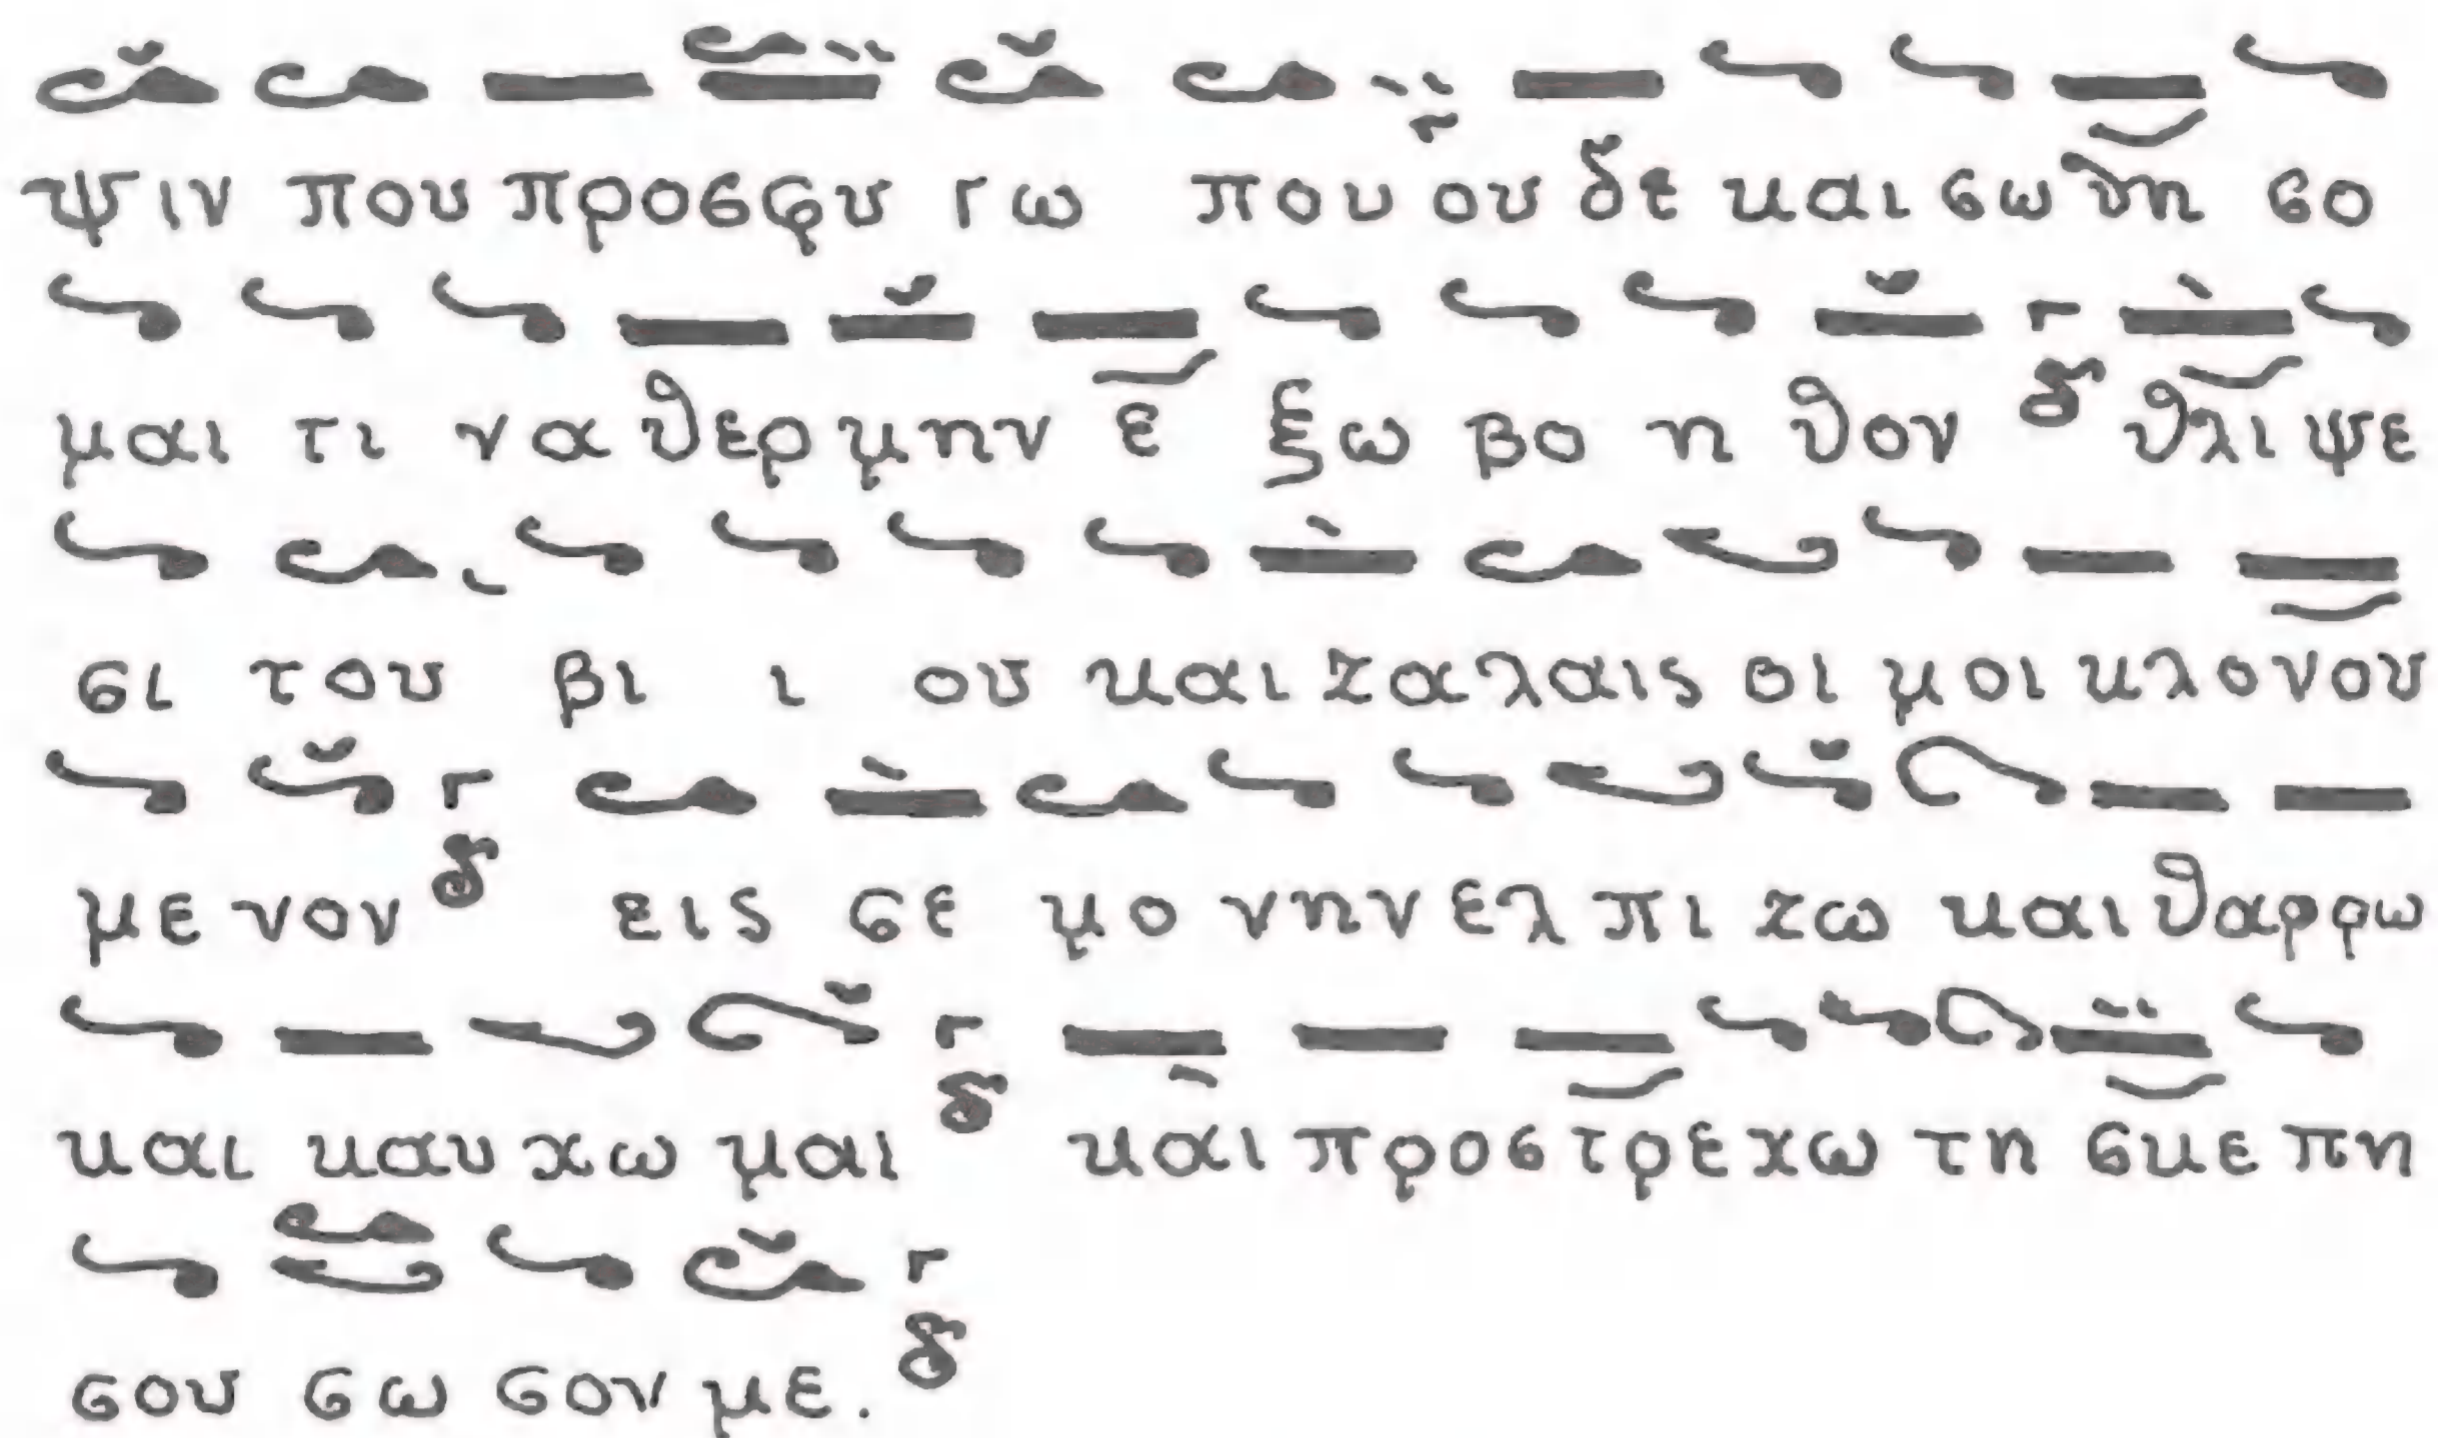 ψιν που προσφυ γω που ου δε και σω θη σο
μαι τι να θερμην ε ξω βο η θον δ θλι ψε
σι του βι ι ου και ζαλαις οι μοι κλονου
με νον δ εις σε μο νην ελ πι ζω και θαρρω
και καυ χω μαι δ και προστρεχω τη σκε πη
σου σω σον με. δ